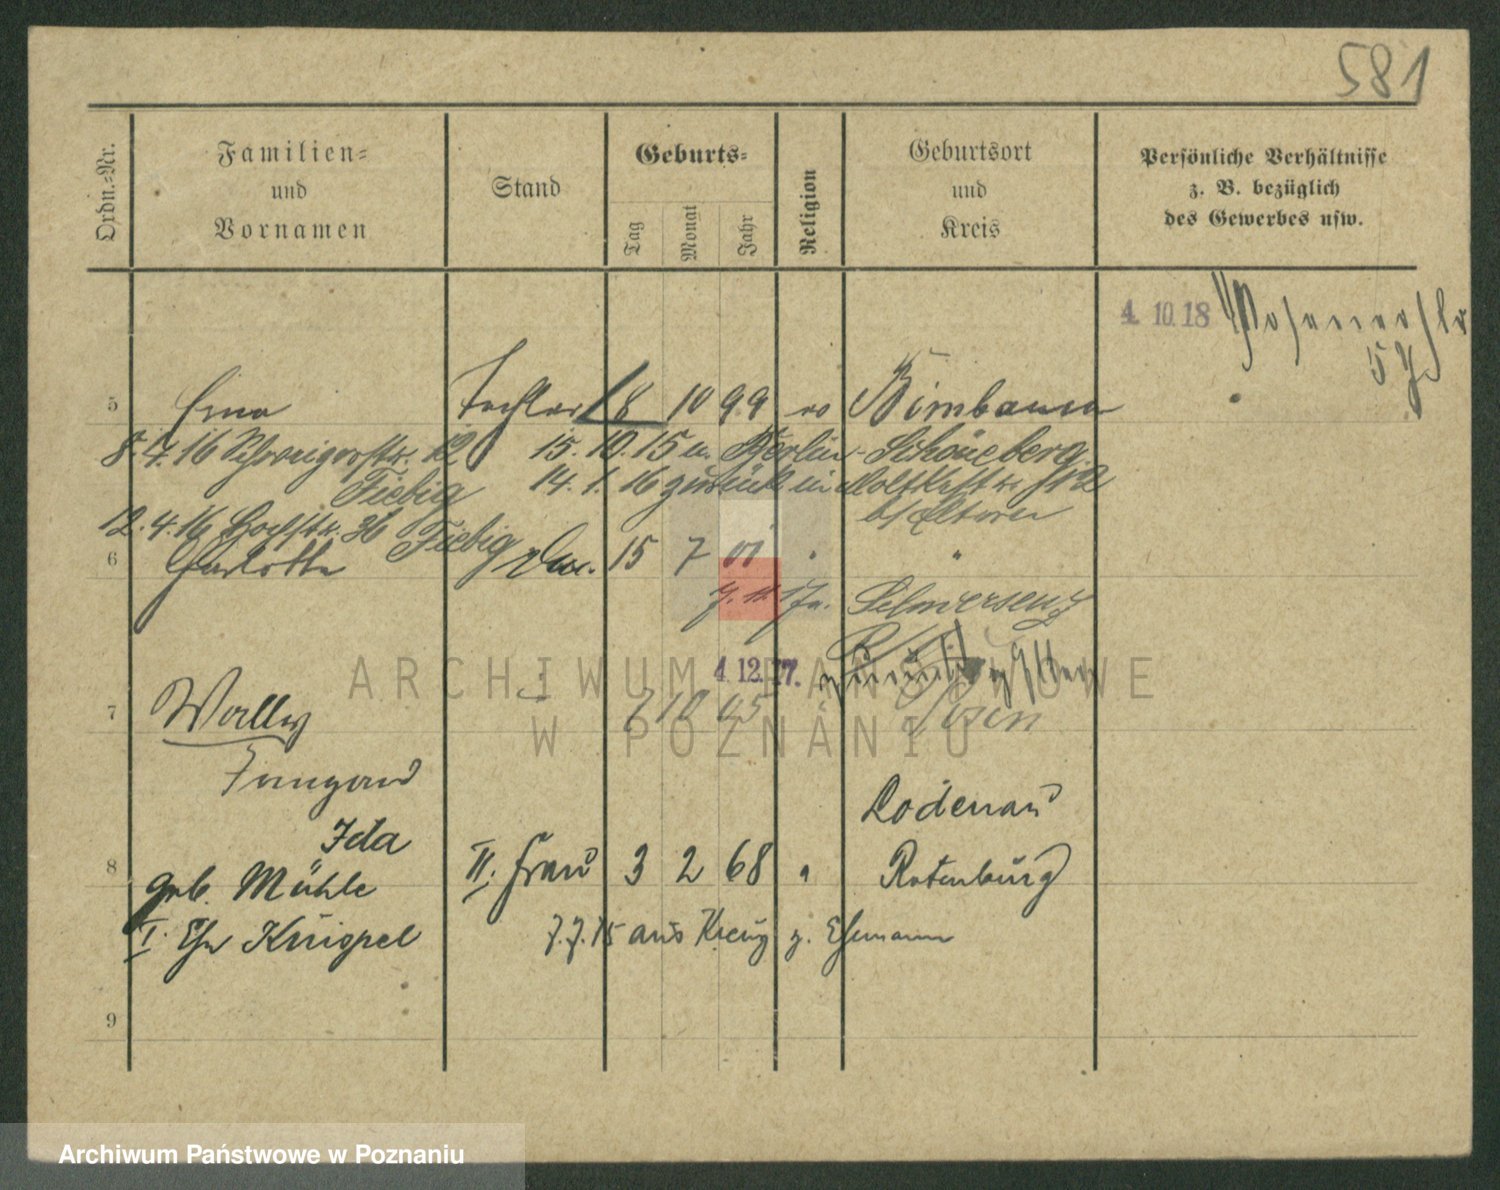 581
Ordn.-Nr.
Familien-
und
Vornamen
Stand
Geburts-
Tag
Monat
Jahr
Religion
Geburtsort
und
Kreis
Persönliche Verhältnisse
z. B. bezüglich
des Gewerbes usw.
4. 10. 18
5 Erna Tochter 8 10 99 ev Birnbaum
8. 4. 16 12 15. 10. 15 n. Berlin-Schöneberg
Fiebig 14. 1. 16 zurück in Moltkestr.
b/ Eltern
12. 4. 16 36 Fiebig
6 Charlotte 15 7 01 "
Schwersenz
4. 12. 17.
7 Wally 7 10 05 Posen
Irmgard
Lodenau
Ida
8 geb. Mühle II. Frau 3 2 68 " Rotenburg
I. Ehe Knispel 7. 7. 15 aus Kreuz z. Ehemann
9
ARCHIWUM PAŃSTWOWE
W POZNANIU
Archiwum Państwowe w Poznaniu